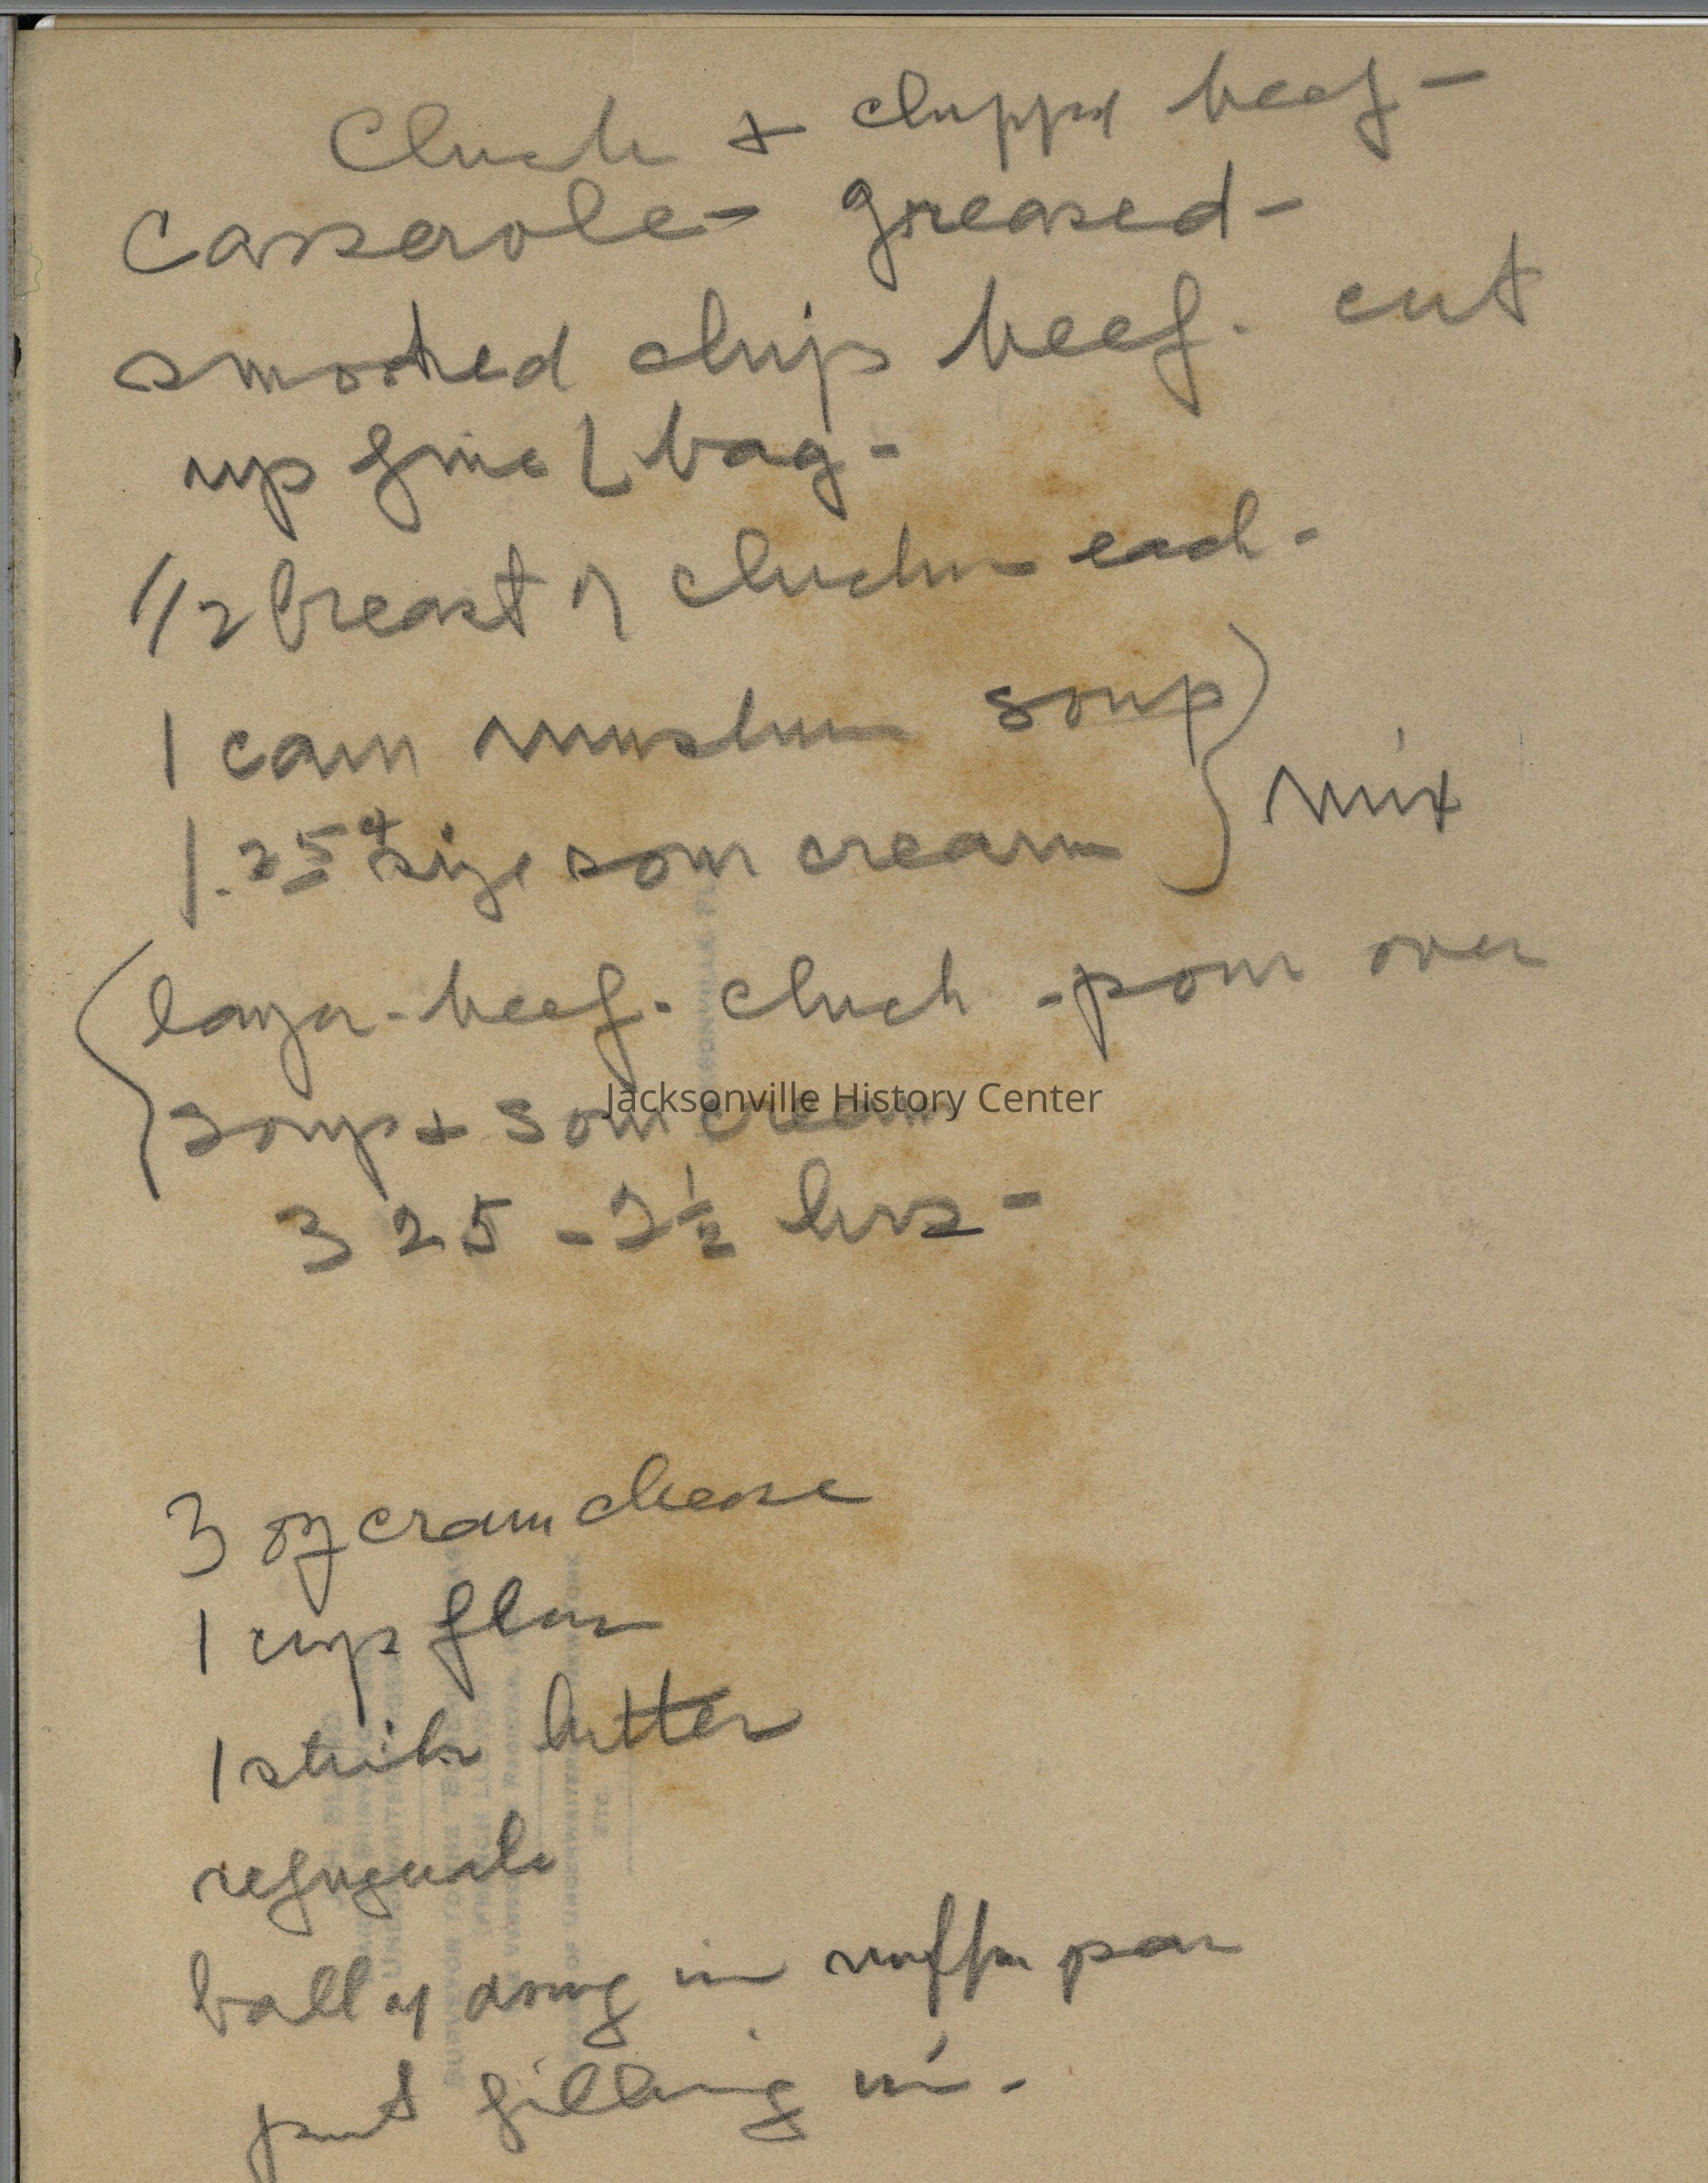 Chick + chippd beef -
Casserole - greased -
smoked chips beef. cut
up fine 1 bag -
1/2 breast of chicken each -
1 can mushrm soup
1 .25¢ size sour cream } mix
{ layer - beef - chick - pour over
soup + sour cream
Jacksonville History Center
325 - 2 1/2 hrs -
3 oz cream cheese
1 cup flour
1 stick butter
refrigerate
ball of doug in muffin pan
put filling in -